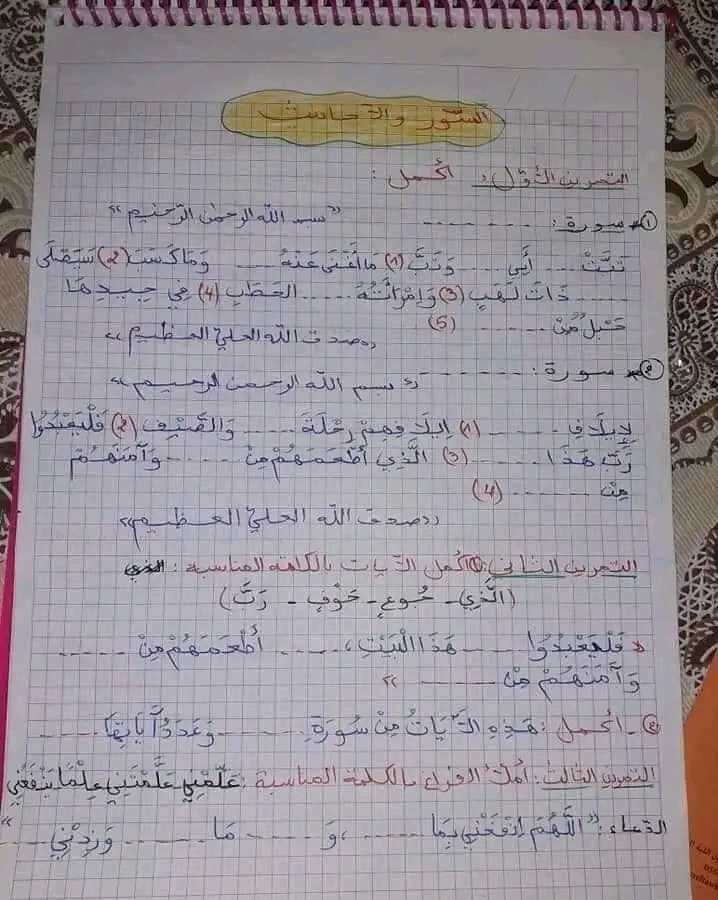 السّور والأحاديث
التمرين الأوّل: أكمل :
①- سورة : ـ ـ ـ ـ ـ ـ "بسم الله الرحمن الرحيم"
تَبَّتْ .... أَبِي .... وَتَبَّ (1) مَا أَغْنَى عَنْهُ .... وَمَا كَسَبَ (2) سَيَصْلَى
...... ذَاتَ لَهَبٍ (3) وَامْرَأَتُهُ ..... الحَطَبِ (4) فِي جِيدِهَا
حَبْلٌ مِّنْ ...... (5)
"صدق الله العليّ العظيم"
②- سورة : ـ ـ ـ ـ ـ ـ ـ
"بسم الله الرحمن الرحيم"
لِإِيلَافِ ...... (1) إِيلَافِهِمْ رِحْلَةَ ..... وَالصَّيْفِ (2) فَلْيَعْبُدُوا
رَبَّ هَذَا ...... (3) الَّذِي أَطْعَمَهُمْ مِنْ ...... وَآمَنَهُمْ
مِنْ ....... (4)
"صدق الله العليّ العظيم"
التمرين الثاني: ① أكمل الآيات بالكلمة المناسبة :
(الَّذِي - جُوعٍ - خَوْفٍ - رَبَّ)
" فَلْيَعْبُدُوا ...... هَذَا الْبَيْتِ، ...... أَطْعَمَهُمْ مِنْ ......
وَآمَنَهُمْ مِنْ ....... "
②- أكمل : هَذِهِ الآيَاتُ مِنْ سُورَةِ ....... وَعَدَدُ آيَاتِهَا .....
التمرين الثالث: أملأ الفراغ بالكلمة المناسبة : عَلِّمْنِي عَلَّمْتَنِي عِلْمًا يَنْفَعُنِي
الدعاء : "اللَّهُمَ انْفَعْنِي بِمَا ......، وَ ...... مَا ...... وَزِدْنِي ....."